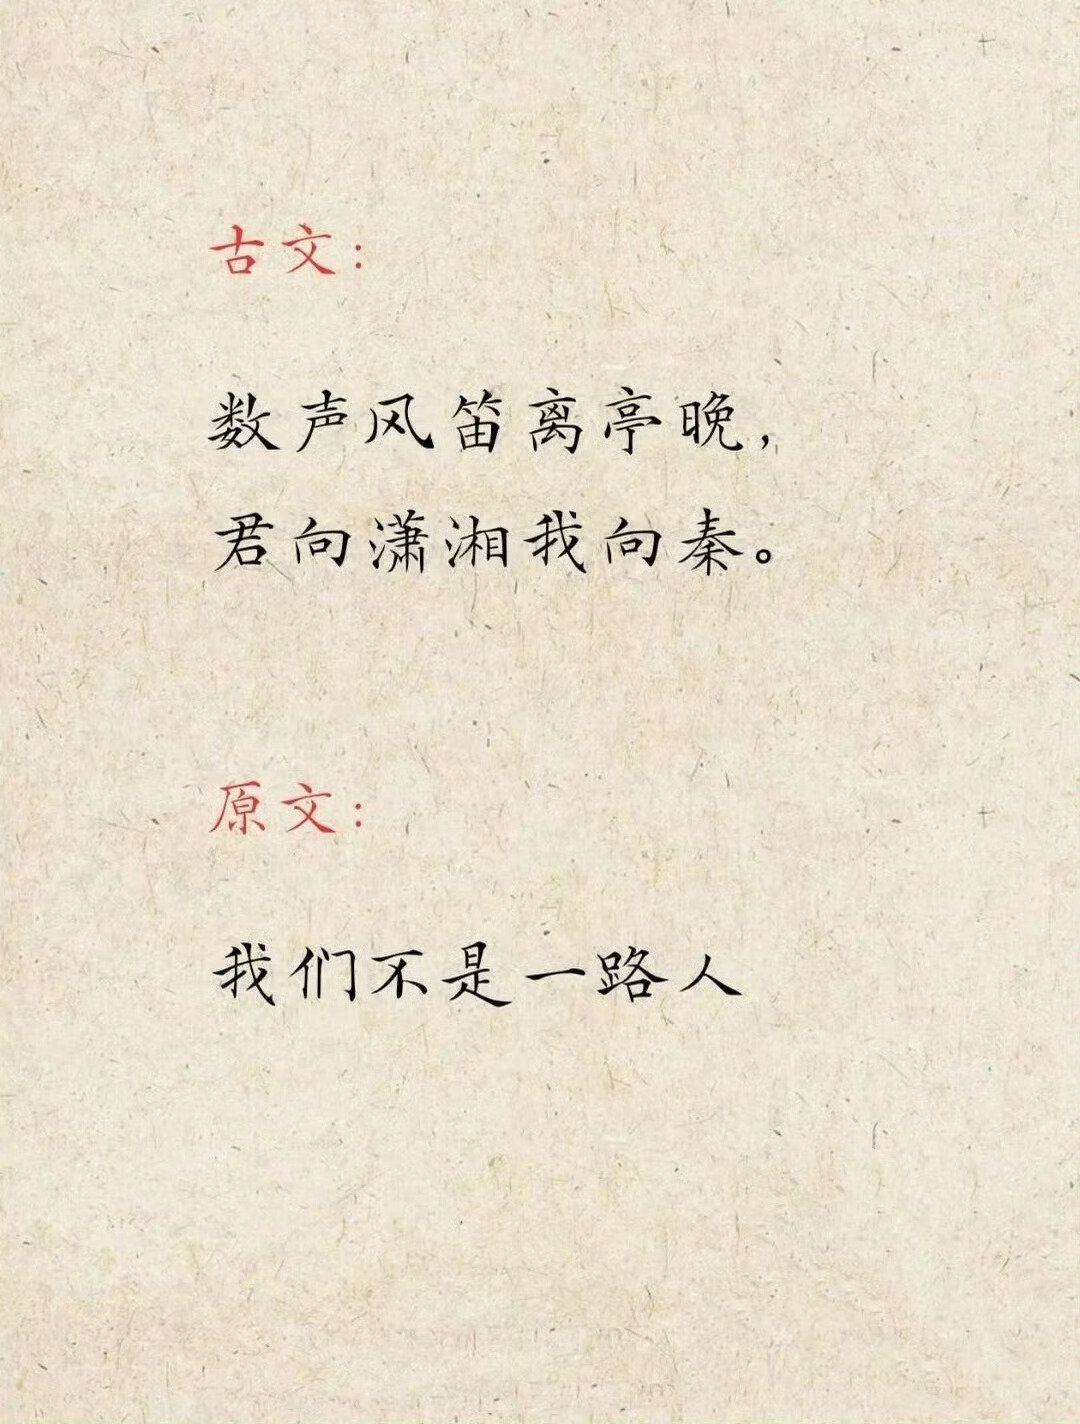 古文：
数声风笛离亭晚，
君向潇湘我向秦。
原文：
我们不是一路人